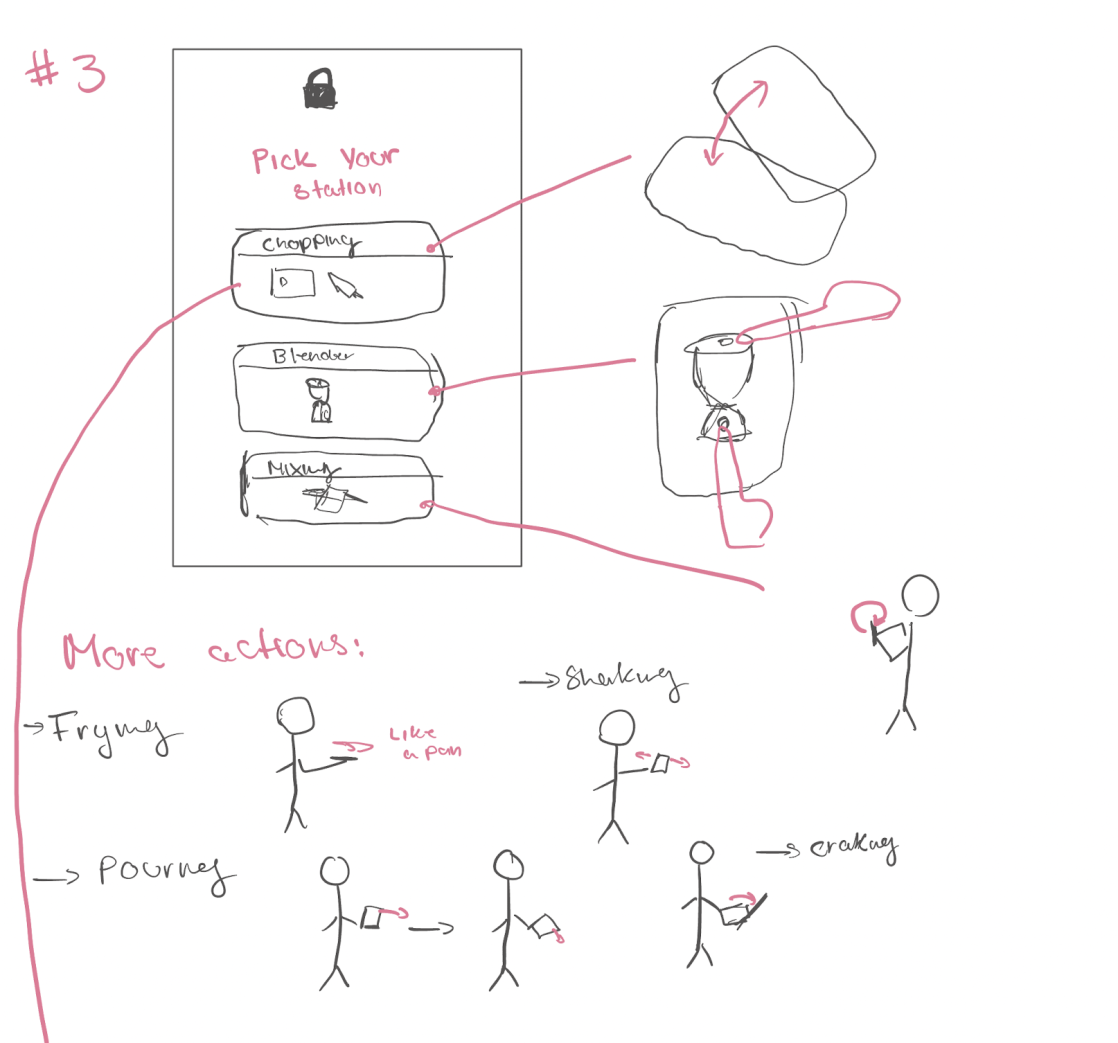 #3
Pick Your
station
Chopping
Blender
Mixing
More actions:
→ Shaking
→ Frying
Like
a pan
→ Pouring
→ craking